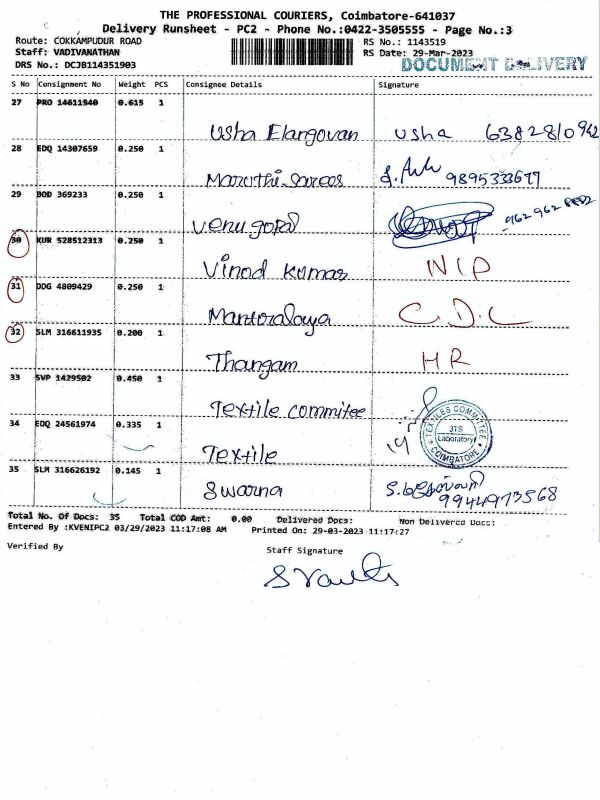 THE PROFESSIONAL COURIERS, Coimbatore-641037
Delivery Runsheet - PC2 - Phone No.:0422-3505555 - Page No.:3
Route: COKKAMPUDUR ROAD
RS No.: 1143519
Staff: VADIVANATHAN
RS Date: 29-Mar-2023
DRS No.: DCJB114351903
DOCUMENT DELIVERY
S No Consignment No Weight PCS Consignee Details Signature
27 PRO 14611540 0.615 1
Usha Elangovan usha
28 EDQ 14307659 0.250 1
Maruthi Sarees 9895333677
29 BOD 369233 0.250 1
Venu gopal
30 KUR 528512313 0.250 1
Vinod Kumar NIP
31 DDG 4809429 0.250 1
C.D.L
32 SLM 316611935 0.200 1
Thangam HR
33 SVP 1429502 0.450 1
Textile commitee
TEXTILES COMMITTEE
3TS
Laboratory
COIMBATORE
34 EDQ 24561974 0.335 1
Textile
35 SLM 316626192 0.145 1
Swarna
9944973568
Total No. Of Docs: 35 Total COD Amt: 0.00 Delivered Docs: Non Delivered Docs:
Entered By :KVENIPC2 03/29/2023 11:17:08 AM Printed On: 29-03-2023 11:17:27
Verified By
Staff Signature